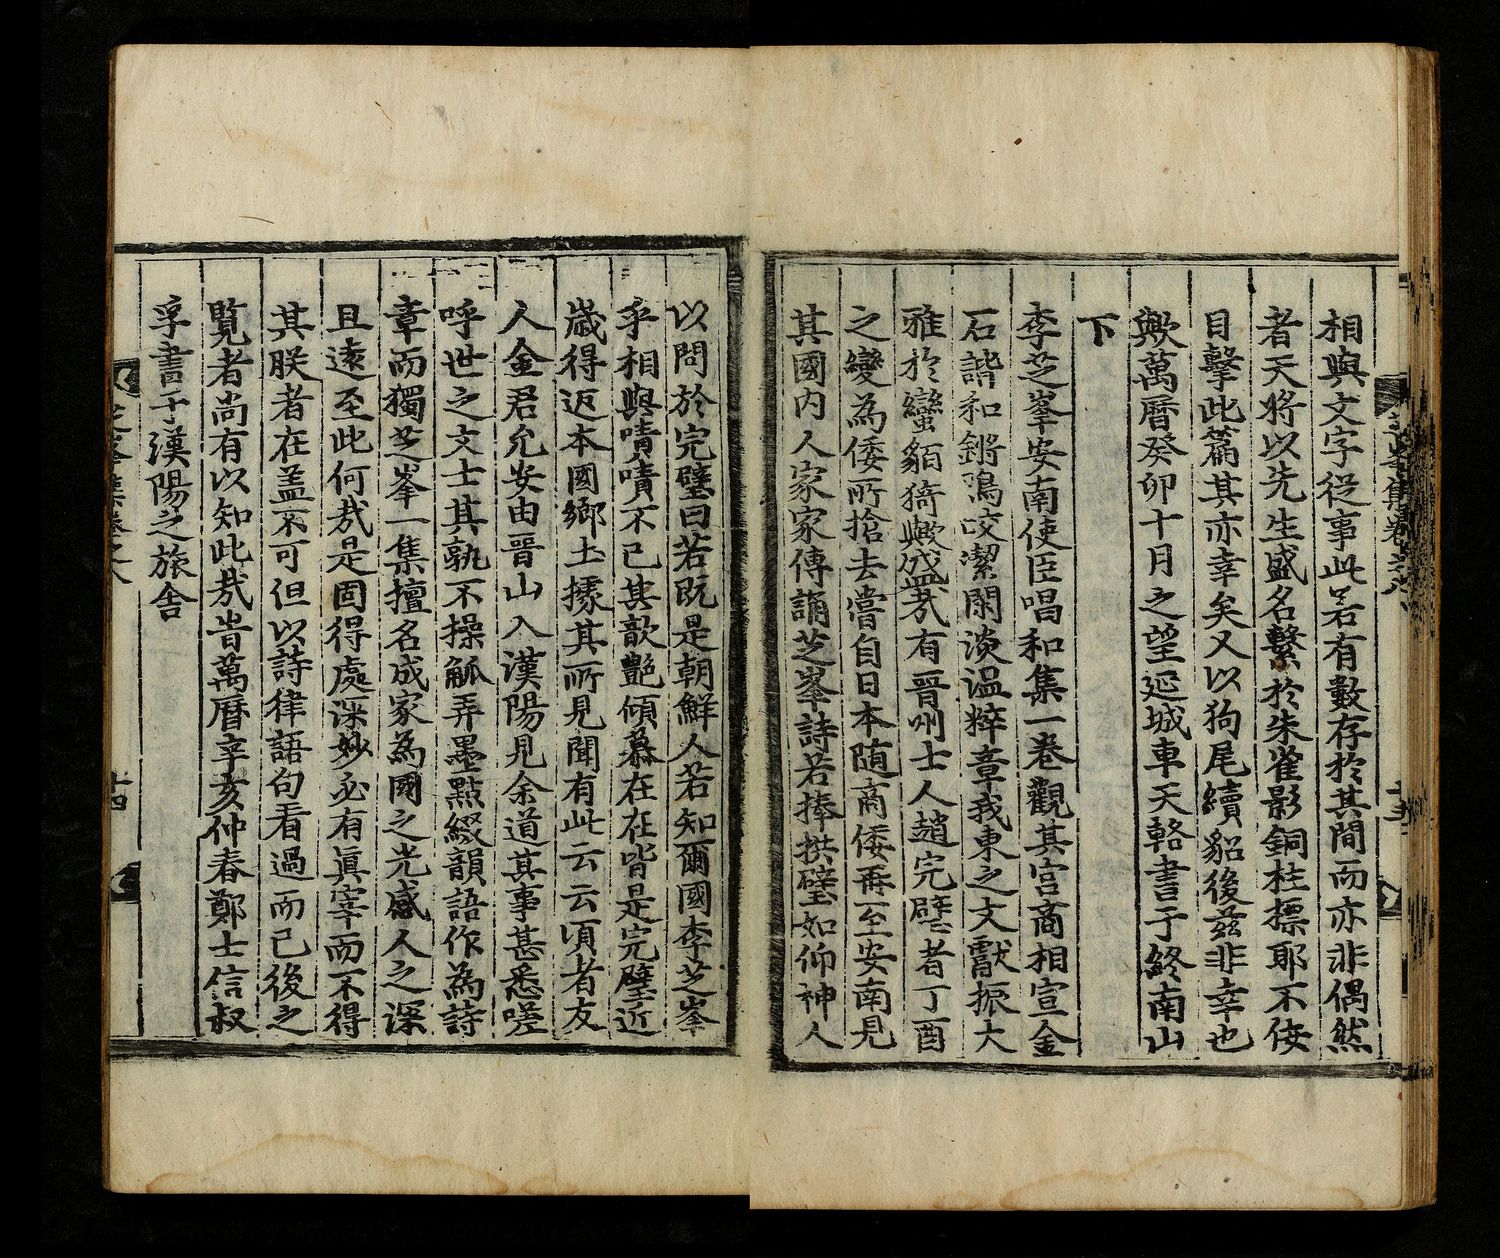 芝峯集卷之八
相與文字從事此若有數存於其間而亦非偶然
者天將以先生盛名繫於朱雀影銅柱標耶不佞
目擊此篇其亦幸矣又以狗尾續貂後玆非幸也
歟萬曆癸卯十月之望延城車天輅書于終南山
下
李芝峯安南使臣唱和集一卷觀其宮商相宣金
石諧和鏘鳴咬潔閑淡温粹章我東之文獻振大
雅於蠻貊猗歟盛㢤有晋州士人趙完璧者丁酉
之變為倭所搶去嘗自日本随商倭再至安南見
其國內人家家傳誦芝峯詩若捧拱璧如仰神人
以問於完璧曰若既是朝鮮人若知爾國李芝峯
乎相與嘖嘖不已其歆艶傾慕在在皆是完璧近
歲得返本國鄉土㩀其所見聞有此云云頃者友
人金君允安由晋山入漢陽見余道其事甚悉嗟
呼世之文士其孰不操觚弄墨點綴韻語作為詩
章而獨芝峯一集擅名成家為國之光感人之深
且遠至此何㢤是固得處深妙必有眞宰而不得
其朕者在盖不可但以詩律語句看過而已後之
覽者尚有以知此㢤旹萬曆辛亥仲春鄭士信叔
孚書于漢陽之旅舍
芝峯集卷之八
十四